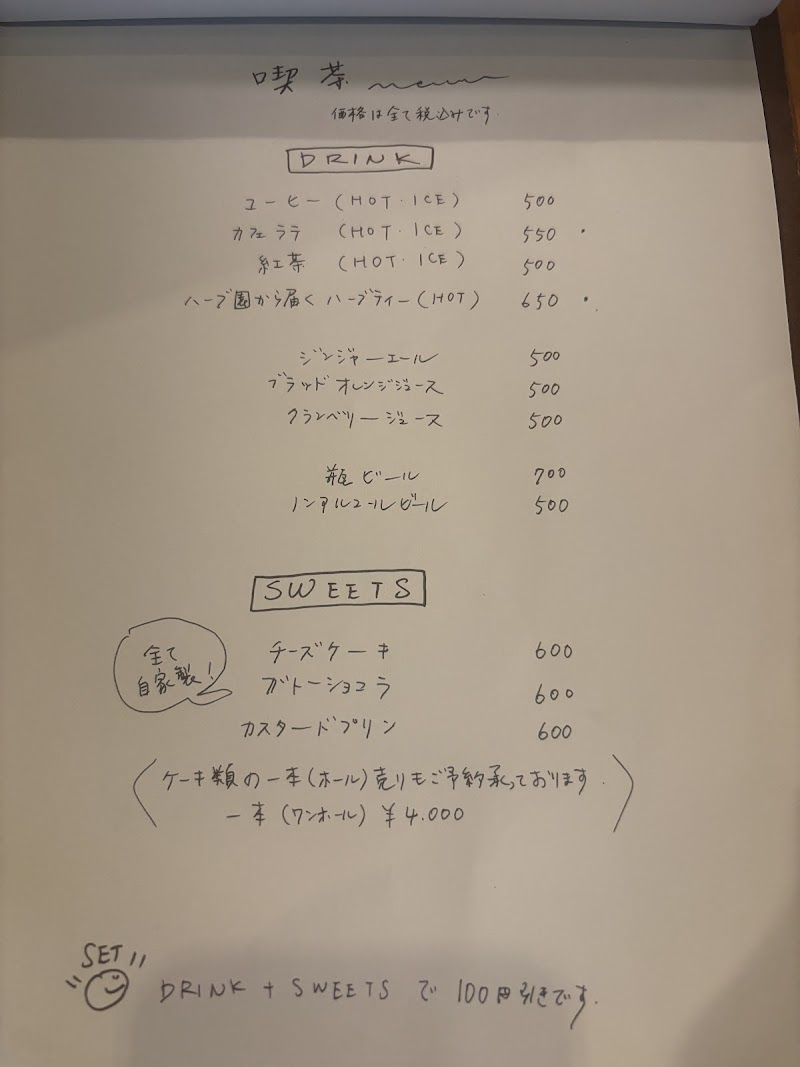 喫茶 menu
価格は全て税込みです
DRINK
コーヒー (HOT・ICE) 500
カフェラテ (HOT・ICE) 550
紅茶 (HOT・ICE) 500
ハーブ園から届く ハーブティー (HOT) 650
ジンジャーエール 500
ブラッドオレンジジュース 500
クランベリージュース 500
瓶ビール 700
ノンアルコールビール 500
SWEETS
全て
自家製!
チーズケーキ 600
ガトーショコラ 600
カスタードプリン 600
ケーキ類の一本(ホール)売りもご予約承っております.
一本 (ワンホール) ¥4.000
SET!!
DRINK + SWEETS で 100円引きです.